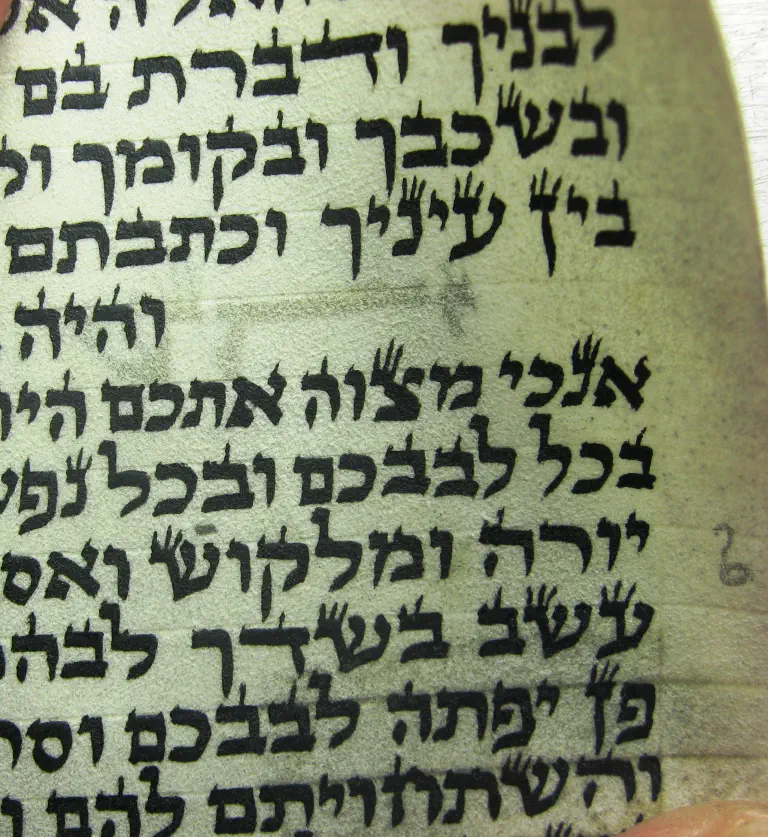 לבניך ודברת בם
ובשכבך ובקומך ול
בין עיניך וכתבתם
והיה
אנכי מצוה אתכם היו
בכל לבבכם ובכל נפש
יורה ומלקוש ואס
עשב בשדך לבהמ
פן יפתה לבבכם וסר
והשתחויתם להם ו